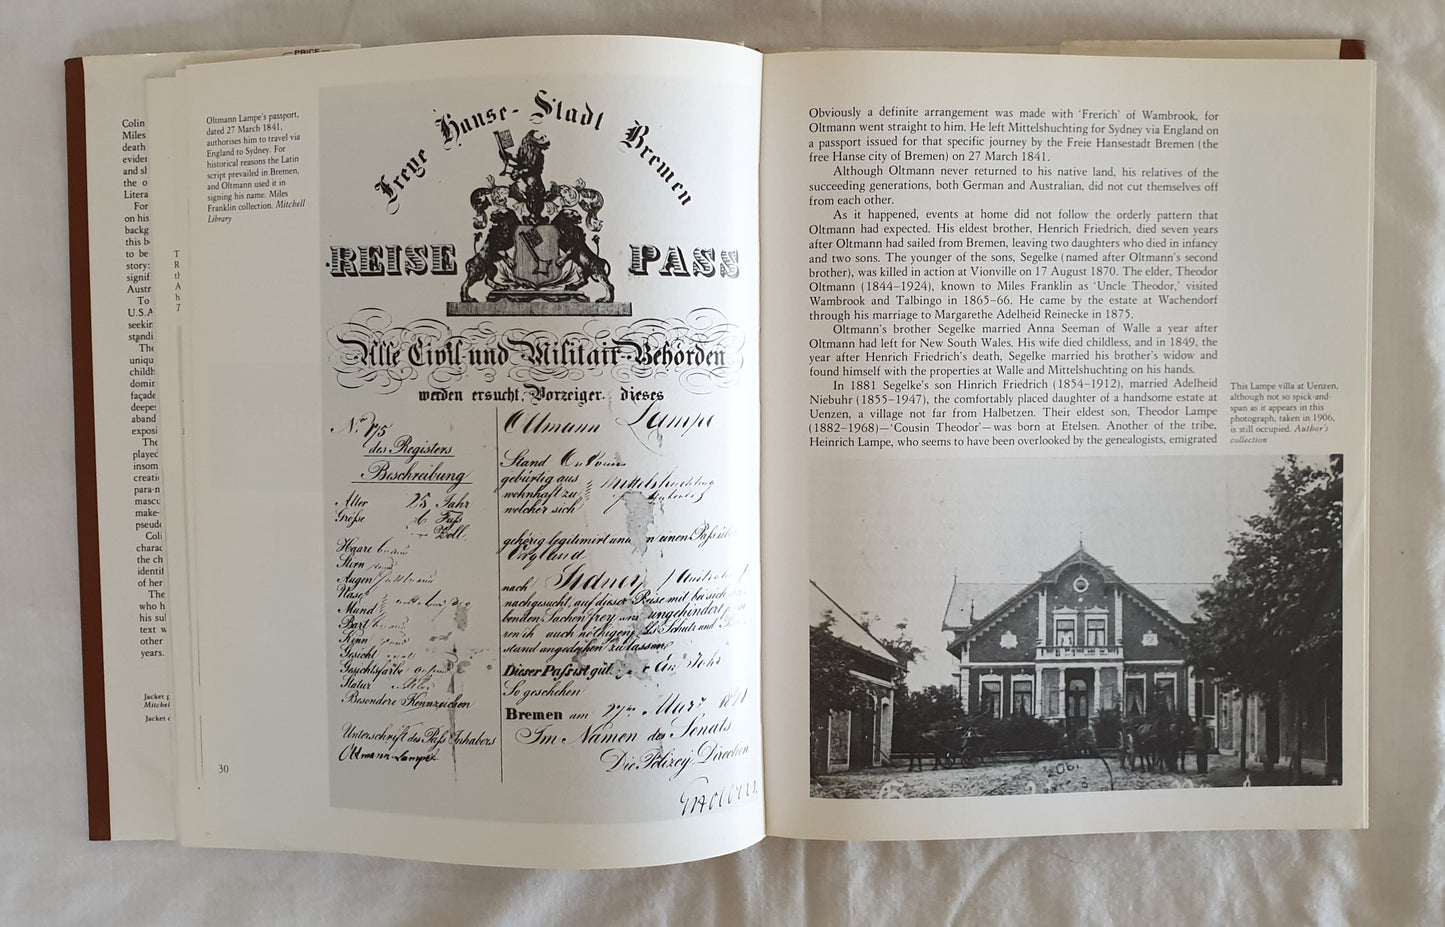 PRICE
Colin
Miles
death
eviden
and sh
the o
Litera
For
on his
backg
this b
to be
story:
signif
Austr
To
U.S.A
seekin
standi
The
uniqu
childh
domin
façade
deepes
aband
exposi
The
played
insom
creati
para-n
mascu
make-
pseudo
Coli
charac
the ch
identif
of her
The
who h
his sul
text w
other
years.
Jacket p
Mitchel
Jacket d
T
R
th
A
h
7
Oltmann Lampe's passport,
dated 27 March 1841,
authorises him to travel via
England to Sydney. For
historical reasons the Latin
script prevailed in Bremen,
and Oltmann used it in
signing his name. Miles
Franklin collection. Mitchell
Library
Freye Hanse-Stadt Bremen
REISE PASS
Alle Civil und Militair-Behörden
werden ersucht, Vorzeiger dieses
No. 875
des Registers
Beschreibung
Alter 25 Jahr
Größe 6 Fuss
Zoll
Haare
Stirn
Augen
Nase
Mund
Bart
Kinn
Gesicht
Gesichtsfarbe
Statur
Besondere Kennzeichen
Unterschrift des Paß Inhabers
Oltmann Lampe
Oltmann Lampe
Stand
gebürtig aus Mittelshuchting
wohnhaft zu
welcher sich
gehörig legitimirt und einen Paß über
England
nach Sidney
nachgesucht, auf dieser Reise mit bei sich
benden Sachen frey und ungehindert
ren ich auch nöthigenfalls Schutz und
stand angedeihen zu lassen
Dieser Paß ist gut Ein Jahr
So geschehen
Bremen am 27ten März 1841
Im Namen des Senats
Die Polizey Direction
30
Obviously a definite arrangement was made with 'Frerich' of Wambrook, for
Oltmann went straight to him. He left Mittelshuchting for Sydney via England on
a passport issued for that specific journey by the Freie Hansestadt Bremen (the
free Hanse city of Bremen) on 27 March 1841.
Although Oltmann never returned to his native land, his relatives of the
succeeding generations, both German and Australian, did not cut themselves off
from each other.
As it happened, events at home did not follow the orderly pattern that
Oltmann had expected. His eldest brother, Henrich Friedrich, died seven years
after Oltmann had sailed from Bremen, leaving two daughters who died in infancy
and two sons. The younger of the sons, Segelke (named after Oltmann's second
brother), was killed in action at Vionville on 17 August 1870. The elder, Theodor
Oltmann (1844–1924), known to Miles Franklin as 'Uncle Theodor,' visited
Wambrook and Talbingo in 1865–66. He came by the estate at Wachendorf
through his marriage to Margarethe Adelheid Reinecke in 1875.
Oltmann's brother Segelke married Anna Seeman of Walle a year after
Oltmann had left for New South Wales. His wife died childless, and in 1849, the
year after Henrich Friedrich's death, Segelke married his brother's widow and
found himself with the properties at Walle and Mittelshuchting on his hands.
In 1881 Segelke's son Hinrich Friedrich (1854–1912), married Adelheid
Niebuhr (1855–1947), the comfortably placed daughter of a handsome estate at
Uenzen, a village not far from Halbetzen. Their eldest son, Theodor Lampe
(1882–1968)—'Cousin Theodor'—was born at Etelsen. Another of the tribe,
Heinrich Lampe, who seems to have been overlooked by the genealogists, emigrated
This Lampe villa at Uenzen,
although not so spick-and-
span as it appears in this
photograph, taken in 1906,
is still occupied. Author's
collection